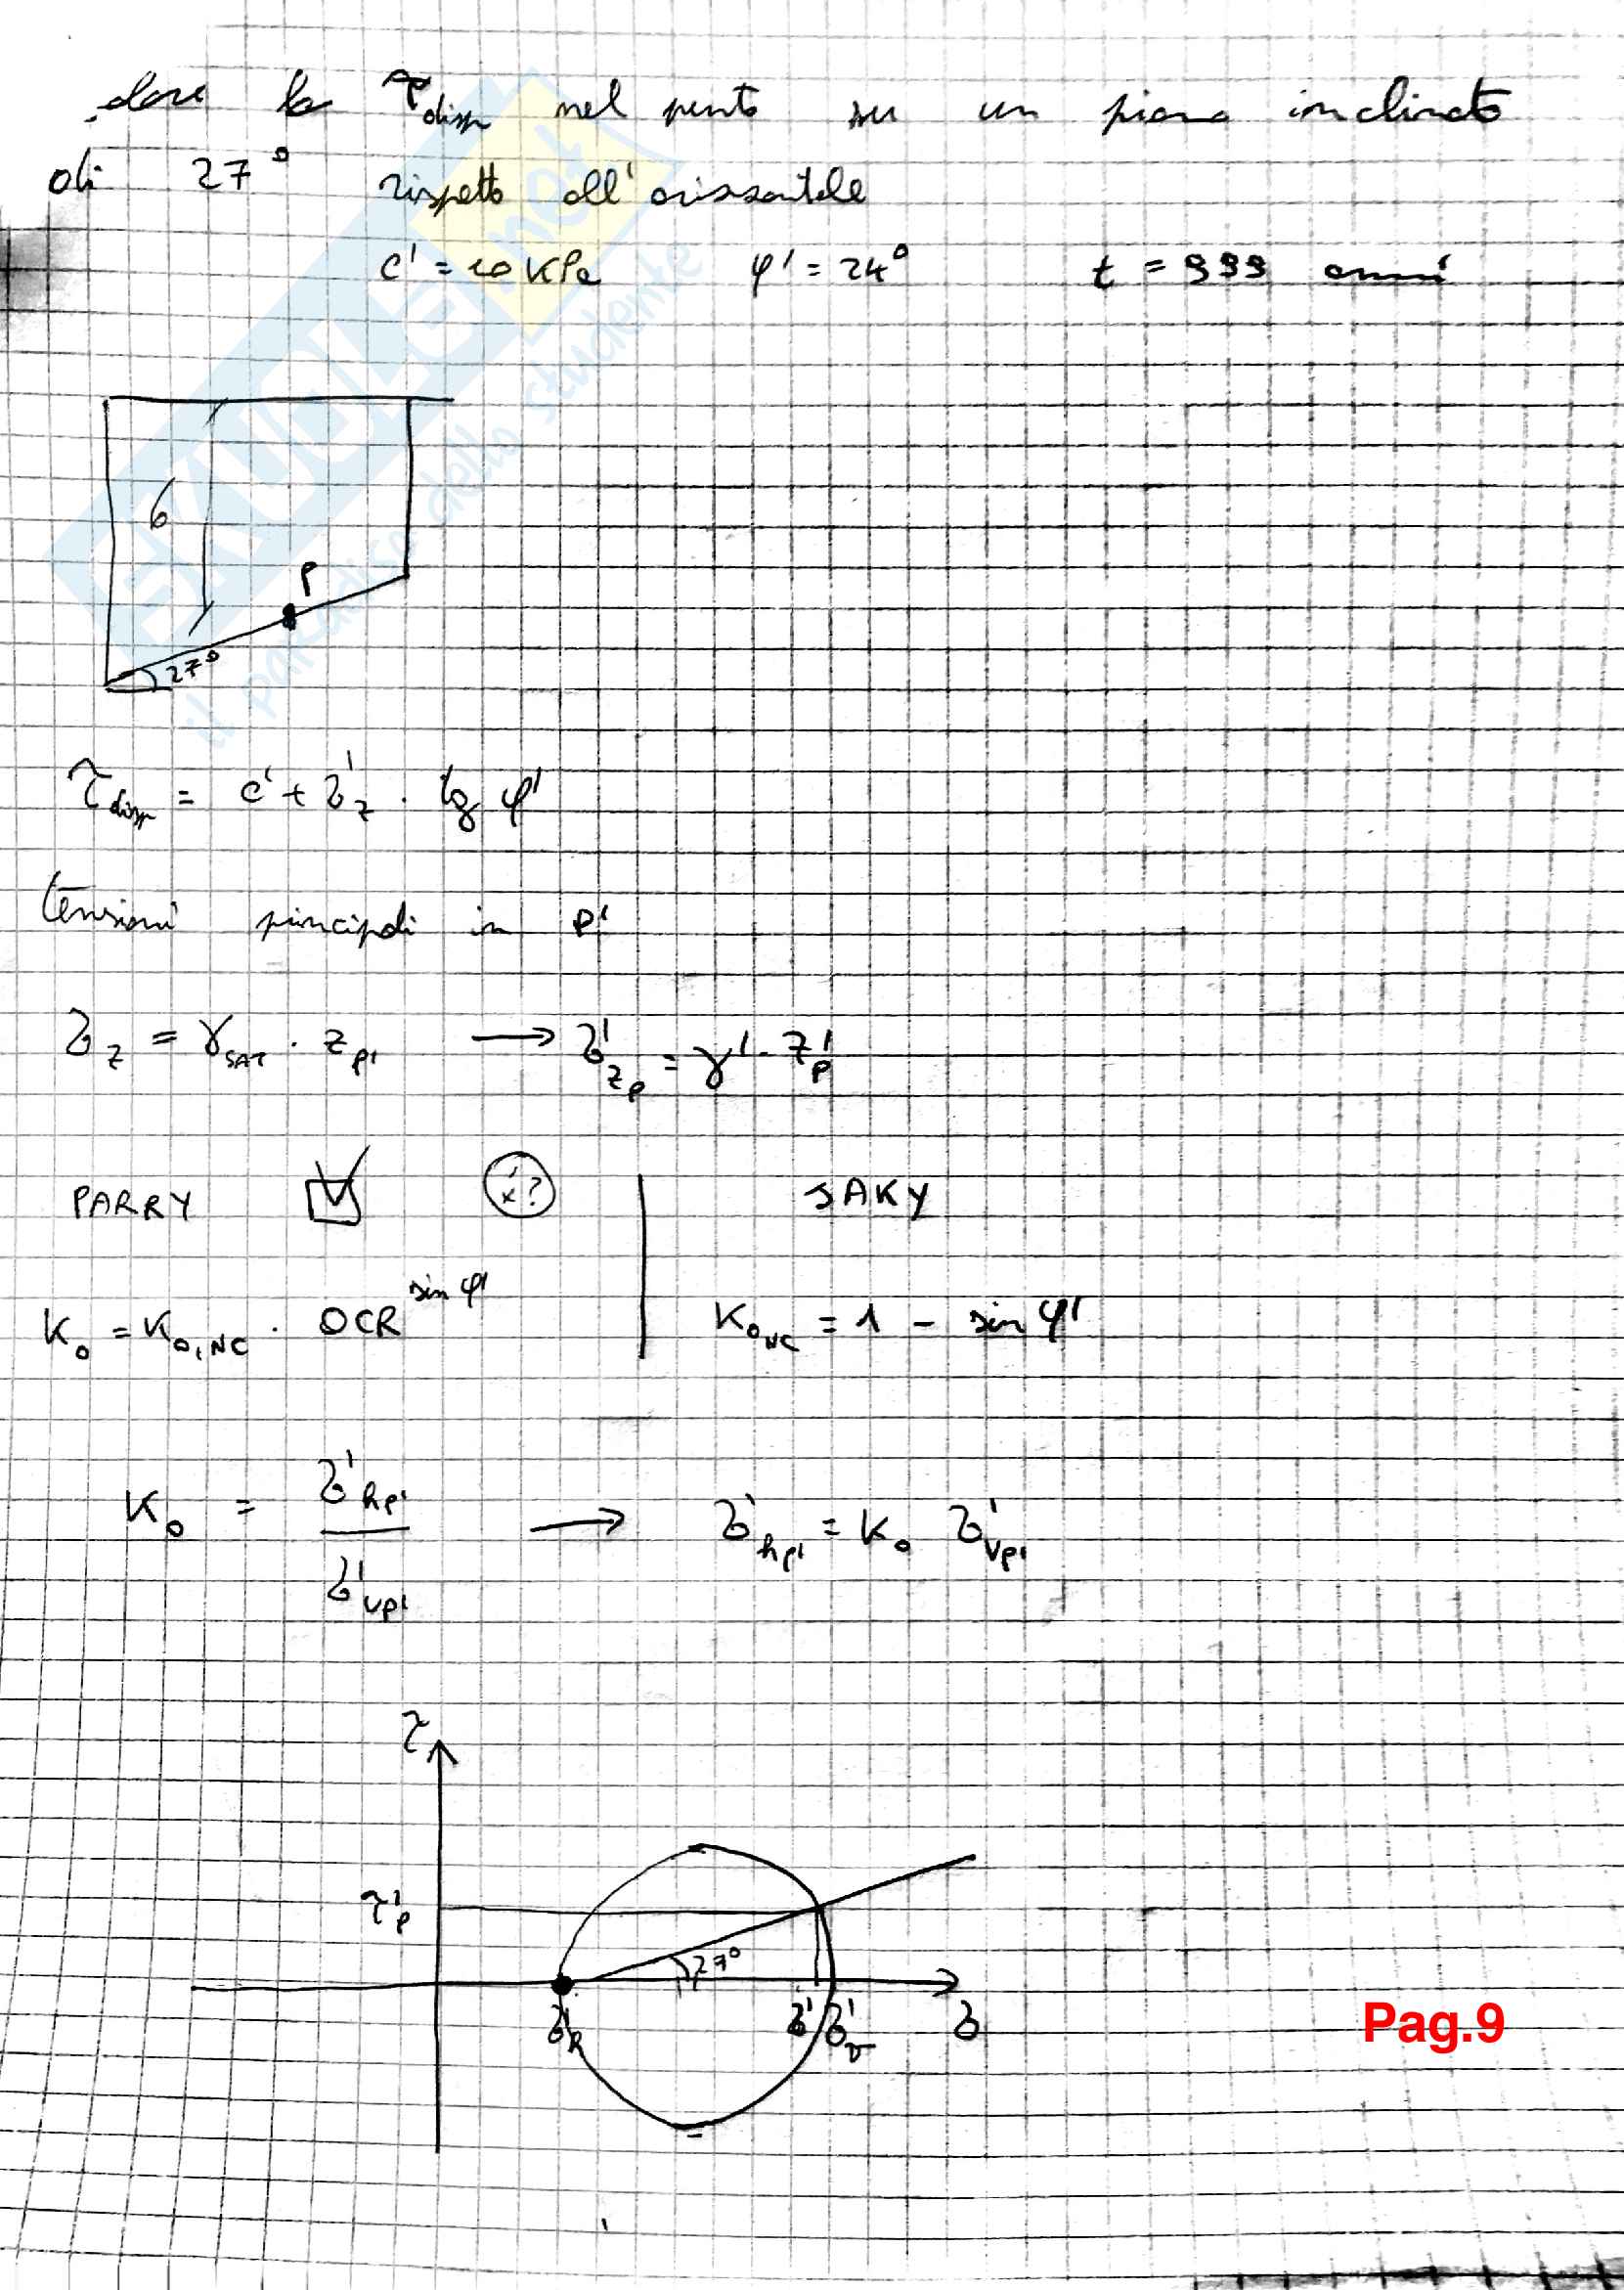 dare la τdisp nel punto su un piano inclinato
di 27° rispetto all'orizzontale
c' = 10 KPa φ' = 24° t = 999 anni
6
P
27°
τdisp = c' + σ'z · tg φ'
tensioni principali in P'
σz = γSAT · zP' → σ'zP = γ' · z'P
PARRY x? JAKY
K0 = K0,NC · OCR^sin φ' K0NC = 1 - sin φ'
K0 = σ'hP' / σ'vP' → σ'hP' = K0 σ'vP'
τ
τ'P
27°
σ'h σ' σ'v σ
Pag.9
SKUOLA.net
il paradiso dello studente